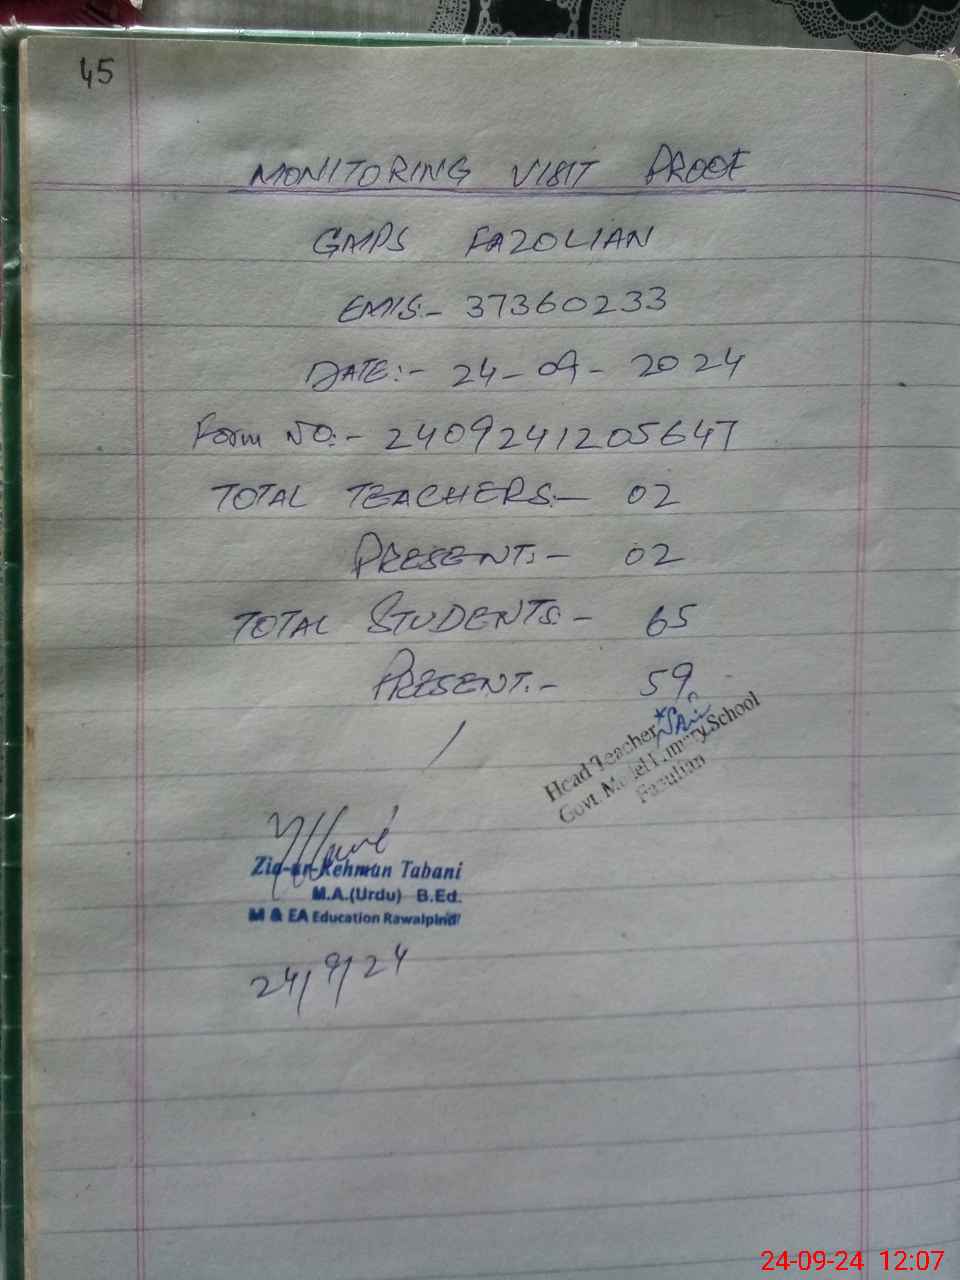 45
MONITORING VISIT PROOF
GMPS FAZOLIAN
EMIS:- 37360233
DATE:- 24-09-2024
Form NO:- 2409241205647
TOTAL TEACHERS:- 02
PRESENT:- 02
TOTAL STUDENTS:- 65
PRESENT:- 59
Head Teacher
Govt. Model Primary School
Fazulian
Zia-ur-Rehman Tabani
M.A.(Urdu) B.Ed.
M & EA Education Rawalpindi
24/9/24
24-09-24 12:07